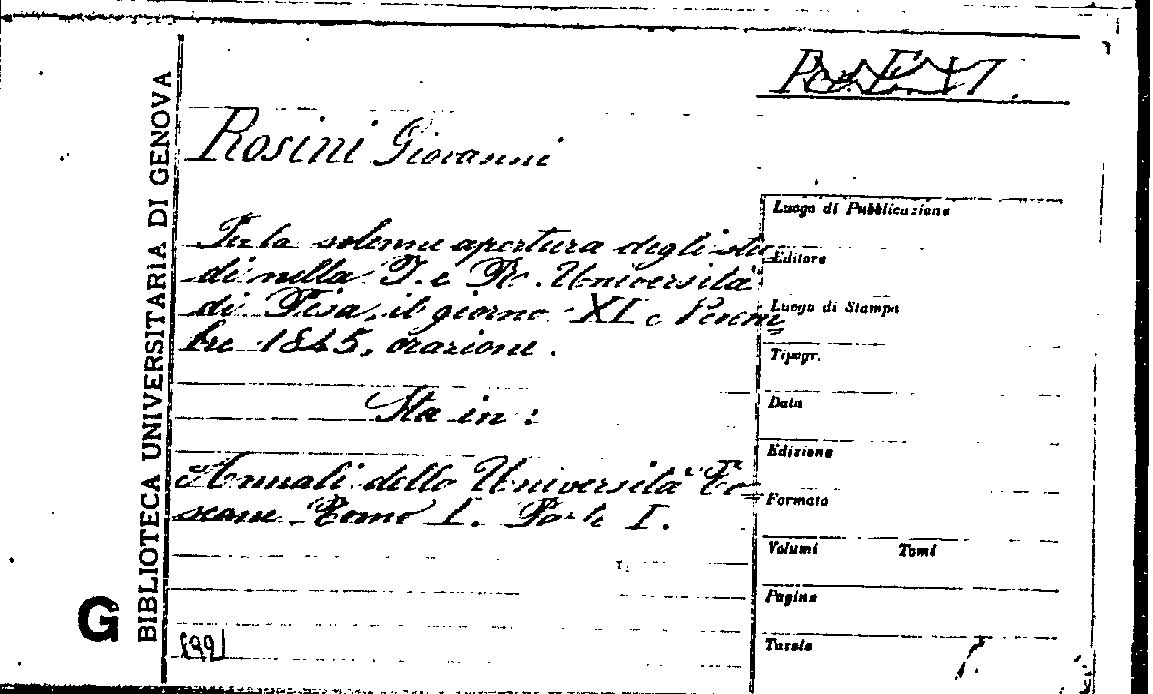 BIBLIOTECA UNIVERSITARIA DI GENOVA
G
Rosini Giovanni
Per la solenne apertura degli stu=
di nella I. e R. Università
di Pisa, il giorno XI Novem=
bre 1845, orazione.
Sta in:
Annali delle Università To=
scane Tomo I. Parte I.
Luogo di Pubblicazione
Editore
Luogo di Stampa
Tipogr.
Data
Edizione
Formato
Volumi Tomi
Pagine
Tavole